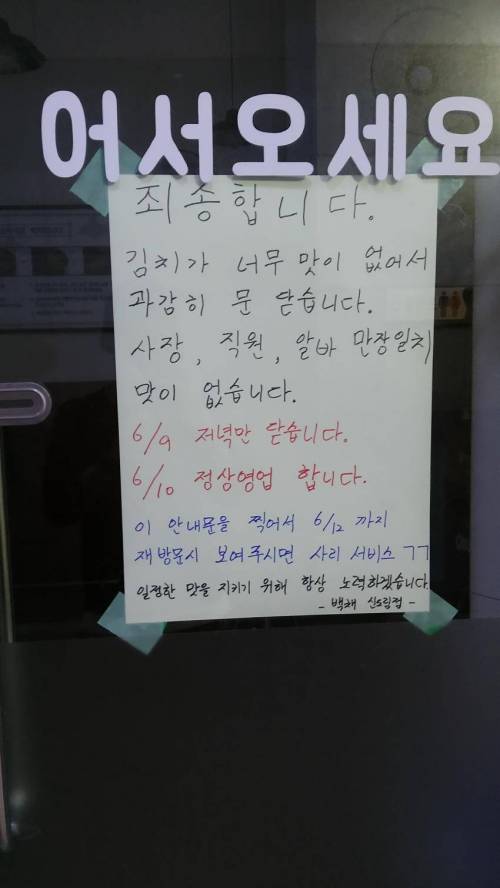 어서오세요
죄송합니다.
김치가 너무 맛이 없어서
과감히 문 닫습니다.
사장, 직원, 알바 만장일치
맛이 없습니다.
6/9 저녁만 닫습니다.
6/10 정상영업 합니다.
이 안내문을 찍어서 6/12 까지
재방문시 보여주시면 사리 서비스 ㄱㄱ
일정한 맛을 지키기 위해 항상 노력하겠습니다.
- 백채 신림점 -